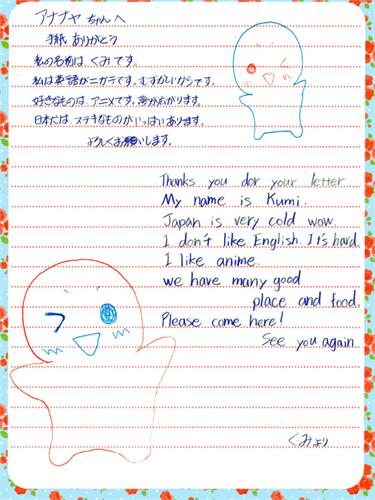 アナナヤ ちゃんへ
手紙 ありがとう
私の名前は、くみです。
私は英語がニガテです。むずかしいからです。
好きなものは、アニメです。夢が広がります。
日本には、ステキなものがいっぱいあります。
よろしくお願いします。
Thanks you dor your letter
My name is Kumi.
Japan is very cold wow.
I don't like English. It's hard.
I like anime.
we have many good
place and food.
Please come here!
See you again.
くみより